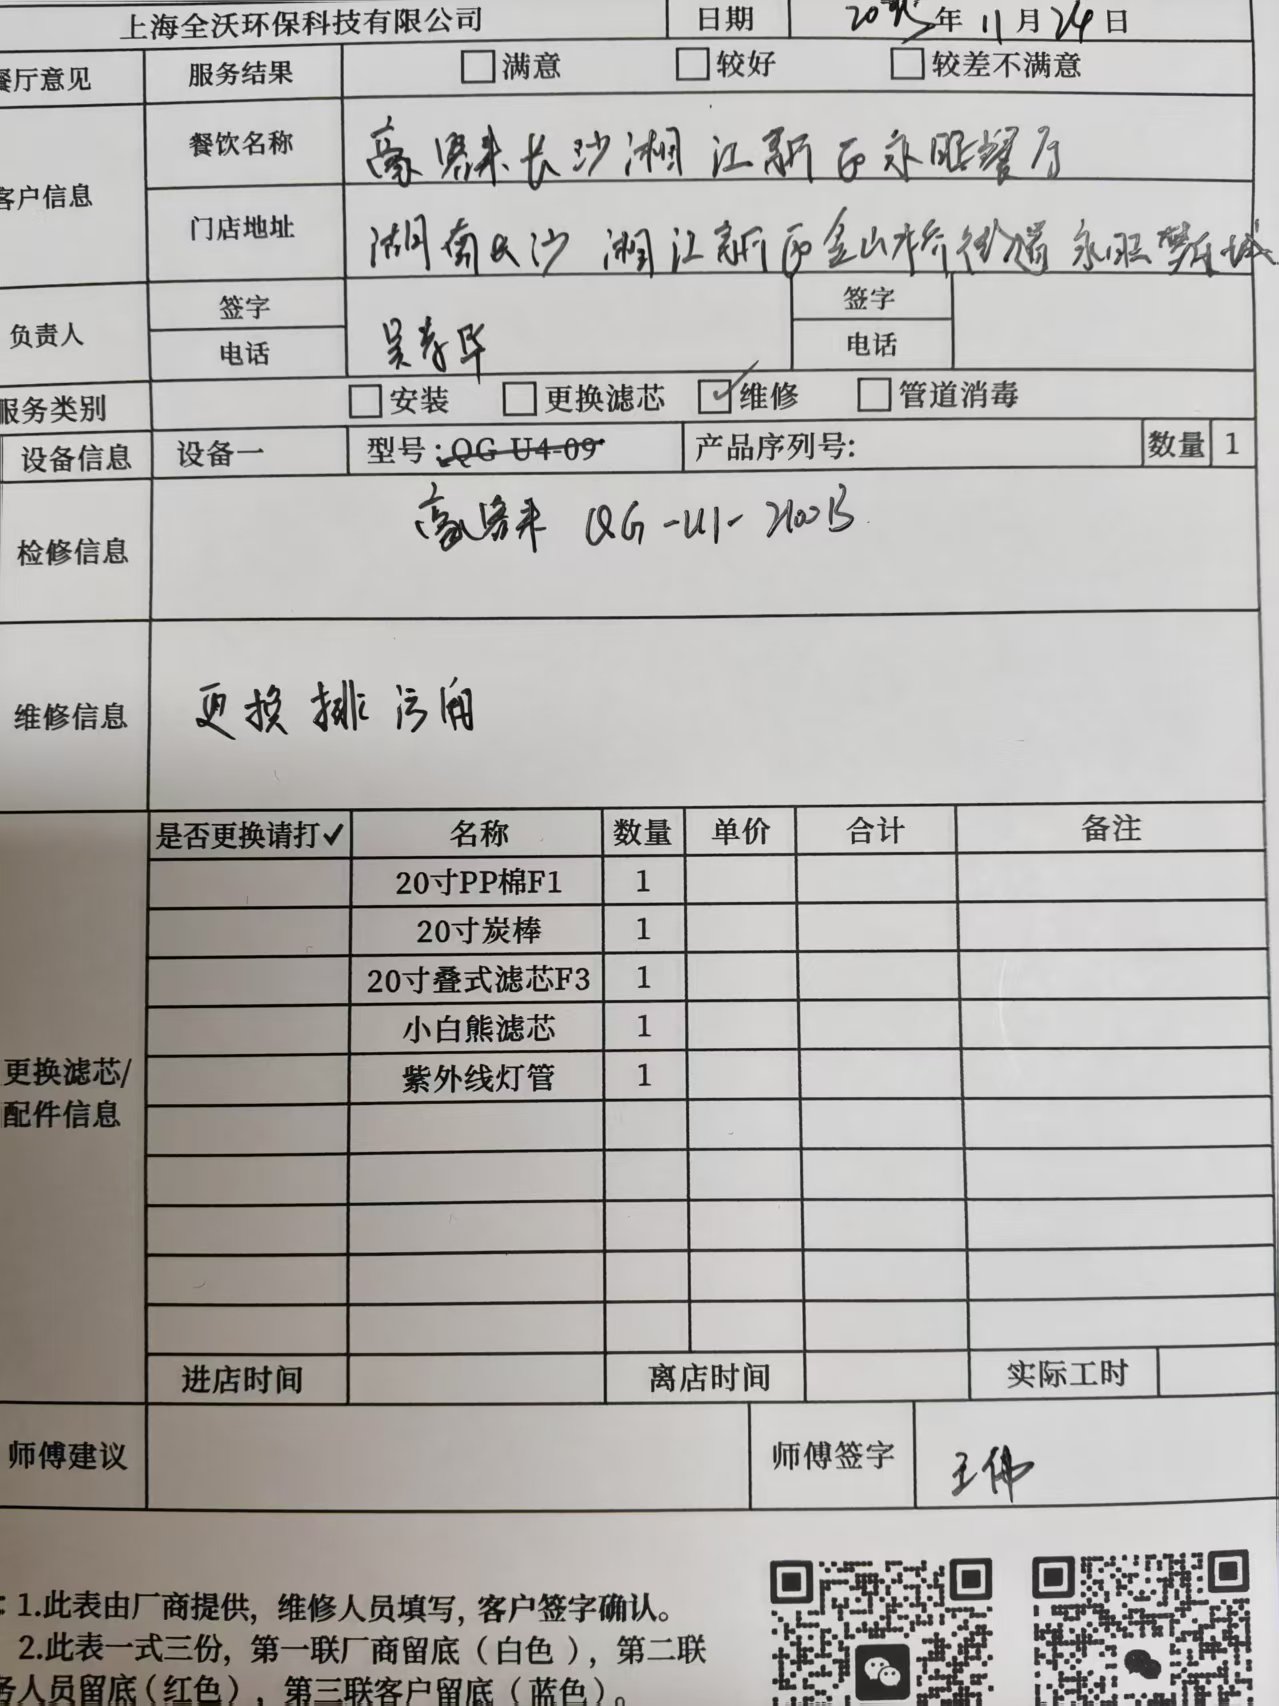 上海全沃环保科技有限公司 日期 年 11月24日
餐厅意见 服务结果 满意 较好 较差不满意
客户信息 餐饮名称 豪客来长沙湘江新区永旺餐厅
门店地址 湖南长沙 湘江新区金山桥街道 永旺梦乐城
负责人 签字 签字
电话 吴孝华 电话
服务类别 安装 更换滤芯 维修 管道消毒
设备信息 设备一 型号:QG-U4-09 产品序列号: 数量 1
检修信息 豪客来 QG-U1-2100B
维修信息 更换排污阀
是否更换请打✓ 名称 数量 单价 合计 备注
20寸PP棉F1 1
20寸炭棒 1
20寸叠式滤芯F3 1
小白熊滤芯 1
紫外线灯管 1
更换滤芯/
配件信息
进店时间 离店时间 实际工时
师傅建议 师傅签字 王伟
: 1.此表由厂商提供, 维修人员填写, 客户签字确认。
2.此表一式三份, 第一联厂商留底（白色）, 第二联
务人员留底（红色）, 第三联客户留底（蓝色）。